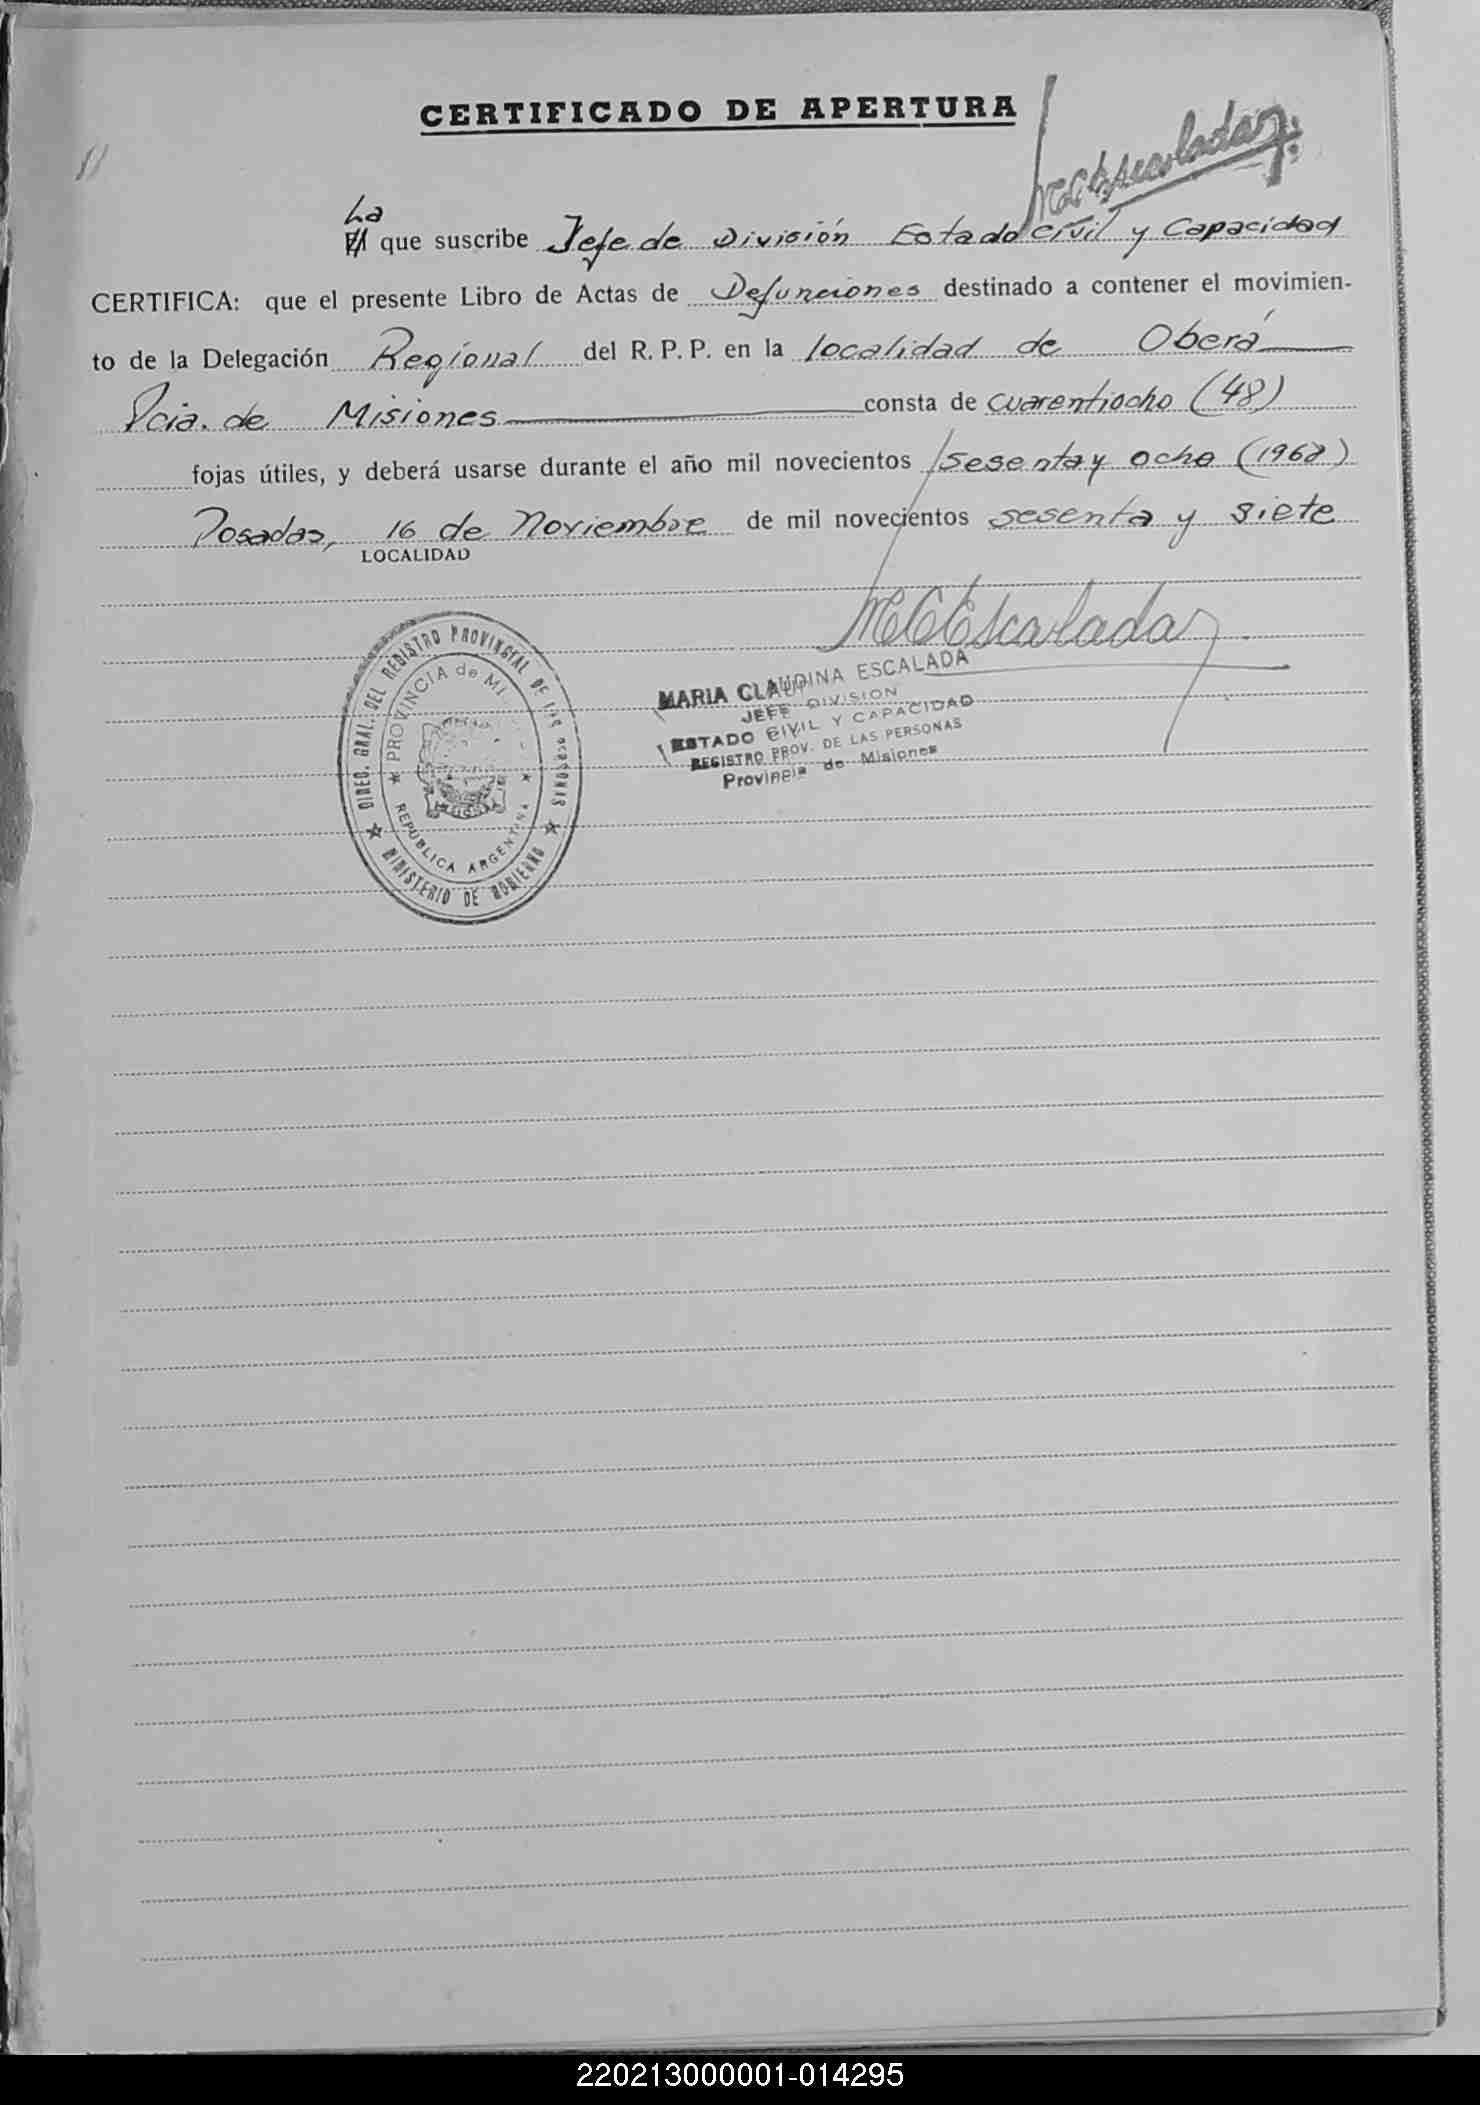 CERTIFICADO DE APERTURA
MCEscalada
La
El que suscribe Jefe de División Estado Civil y Capacidad
CERTIFICA: que el presente Libro de Actas de Defunciones destinado a contener el movimien-
to de la Delegación Regional del R. P. P. en la localidad de Oberá
Pcia. de Misiones consta de cuarentiocho (48)
fojas útiles, y deberá usarse durante el año mil novecientos sesenta y ocho (1968)
Posadas, 16 de Noviembre de mil novecientos sesenta y siete
LOCALIDAD
MCEscalada
MARIA CLAUDINA ESCALADA
JEFE DIVISION
ESTADO CIVIL Y CAPACIDAD
REGISTRO PROV. DE LAS PERSONAS
Provincia de Misiones
DIREC. GRAL. DEL REGISTRO PROVINCIAL DE LAS PERSONAS
MINISTERIO DE GOBIERNO
PROVINCIA de MI
REPUBLICA ARGENTINA
220213000001-014295